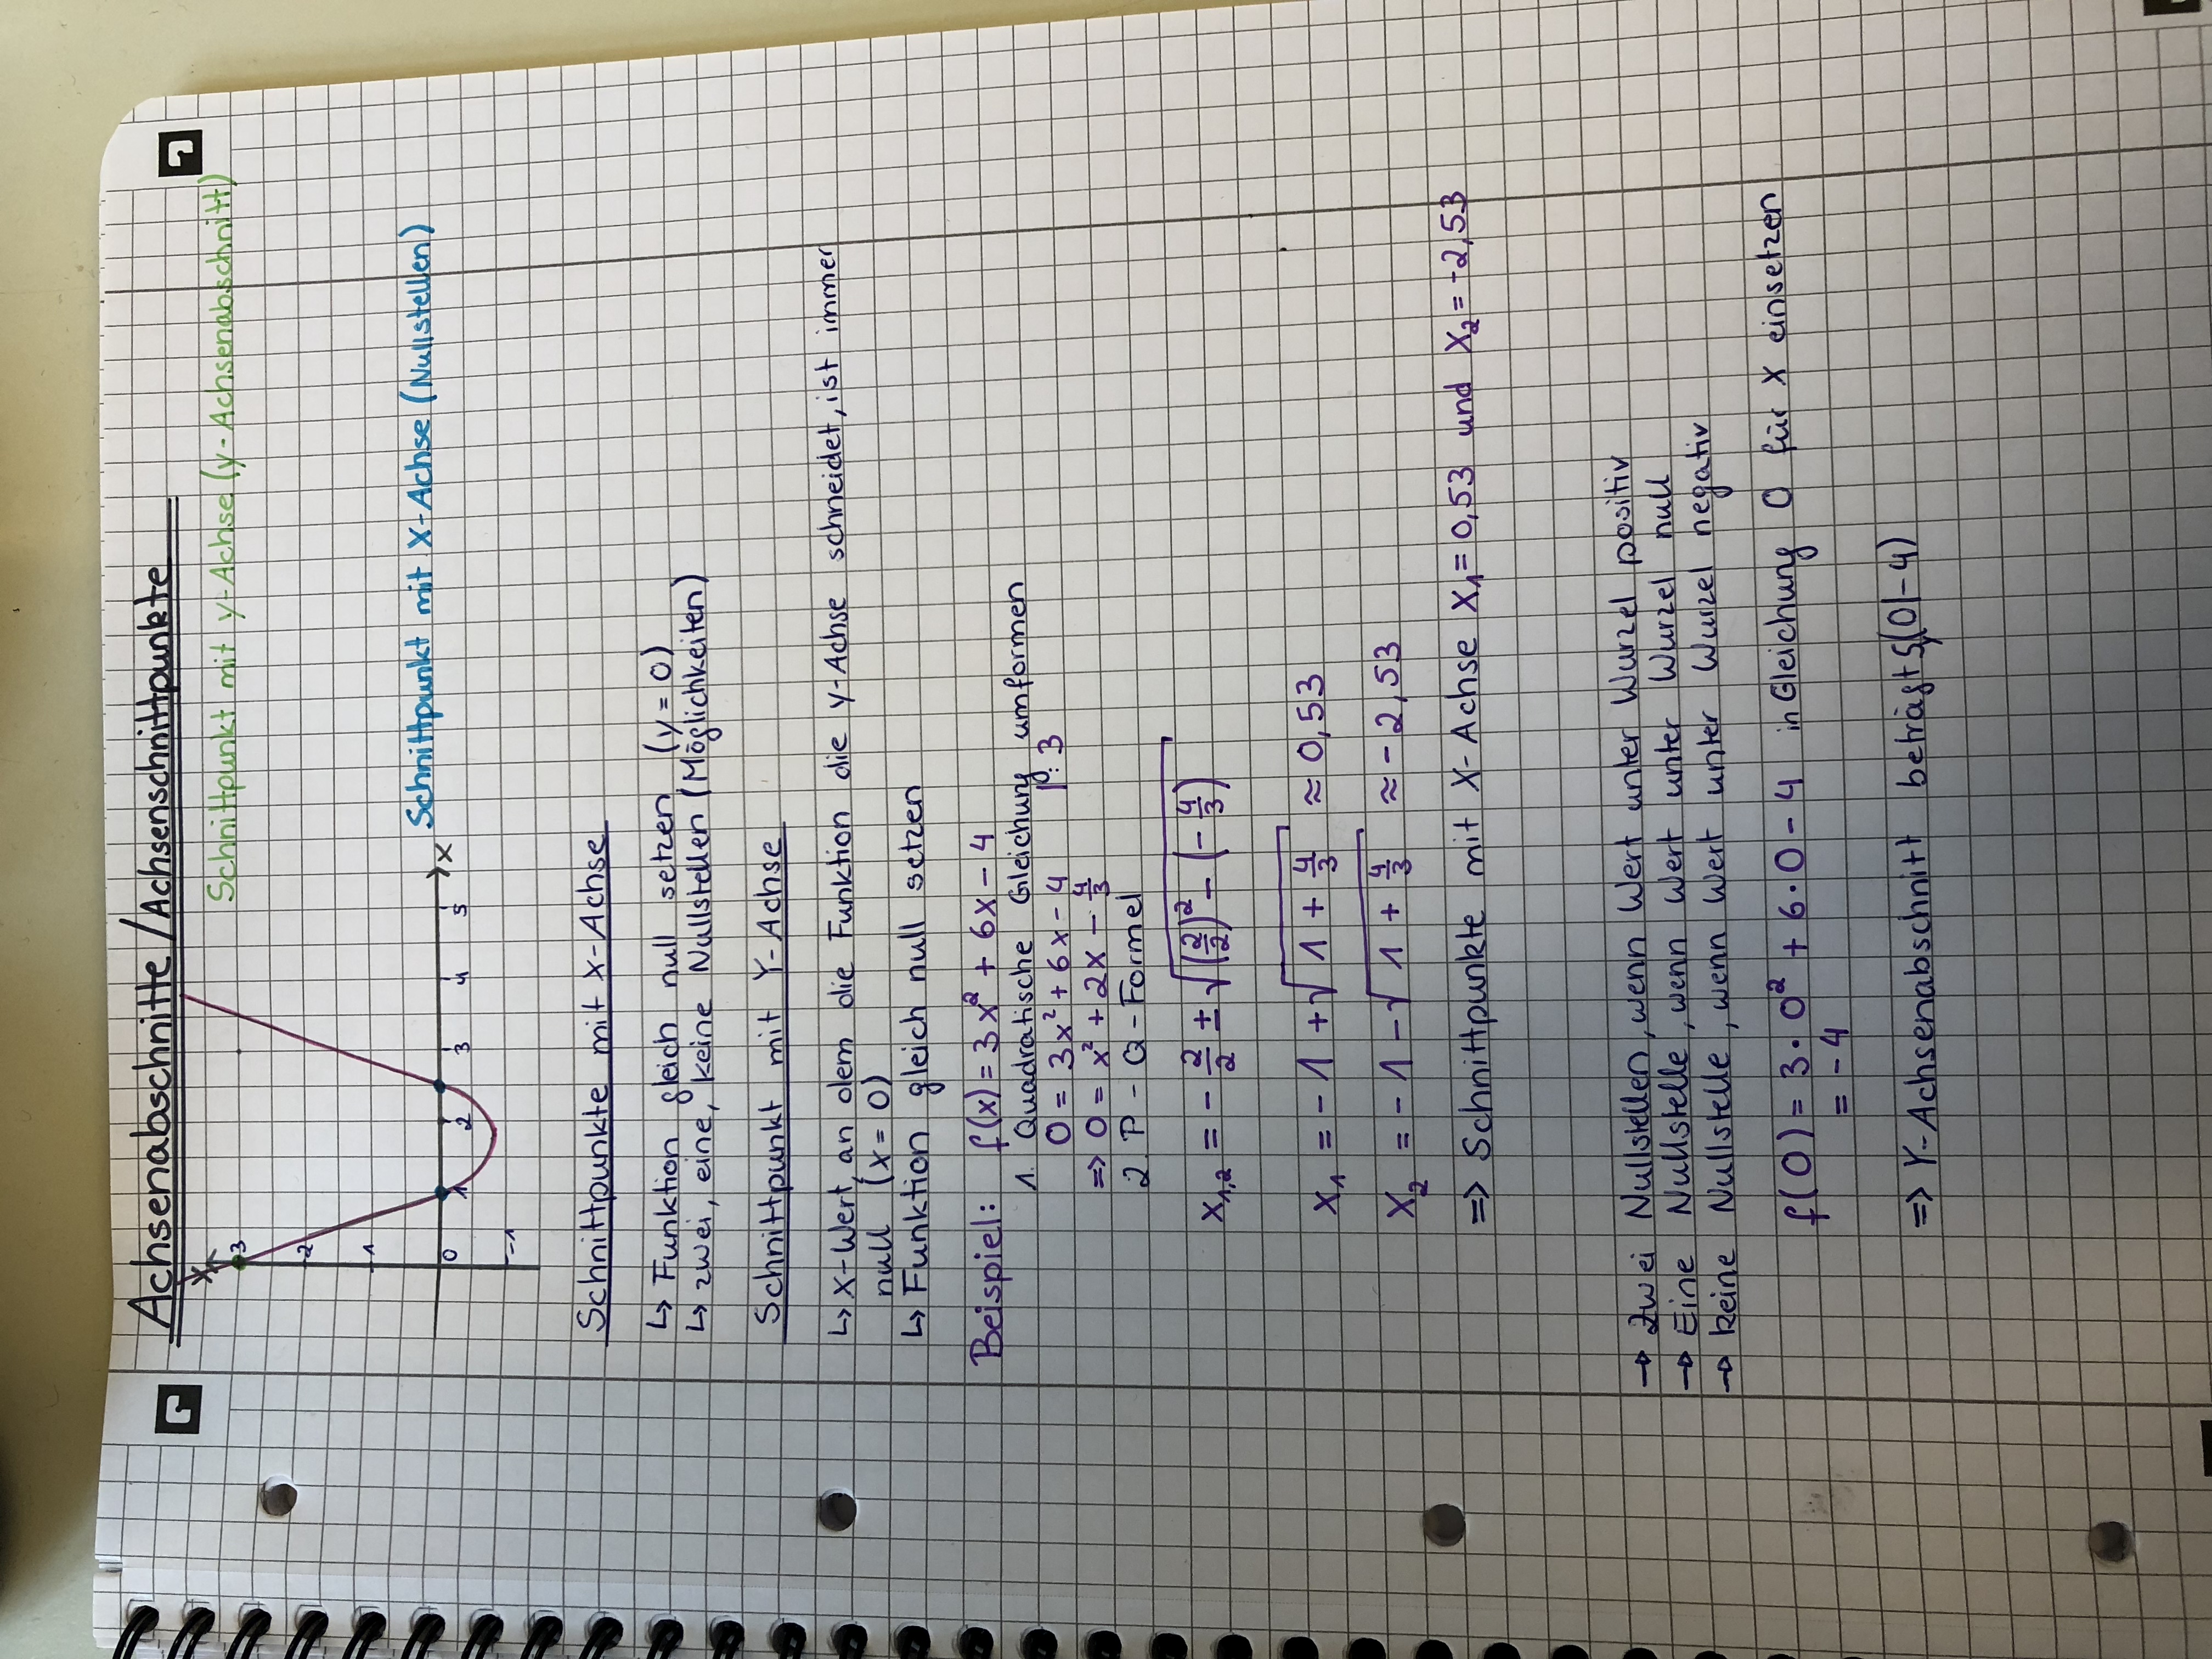 Achsenabschnitte / Achsenschnittpunkte
Schnittpunkt mit y-Achse (y-Achsenabschnitt)
3
2
1
0
-1
1
2
3
4
5
x
Schnittpunkt mit X-Achse (Nullstellen)
Schnittpunkte mit X-Achse
↳ Funktion gleich null setzen (y = 0)
↳ zwei, eine, keine Nullstellen (Möglichkeiten)
Schnittpunkt mit Y-Achse
↳ X-Wert, an dem die Funktion die y-Achse schneidet, ist immer
null (x = 0)
↳ Funktion gleich null setzen
Beispiel: f(x) = 3x² + 6x - 4
1. Quadratische Gleichung umformen
0 = 3x² + 6x - 4 |: 3
=> 0 = x² + 2x - 4/3
2. P-Q-Formel
X₁,₂ = - 2/2 ± √((2/2)² - (- 4/3))
X₁ = - 1 + √(1 + 4/3) ≈ 0,53
X₂ = - 1 - √(1 + 4/3) ≈ - 2,53
=> Schnittpunkte mit X-Achse X₁ = 0,53 und X₂ = -2,53
→ Zwei Nullstellen, wenn Wert unter Wurzel positiv
→ Eine Nullstelle, wenn Wert unter Wurzel null
→ keine Nullstelle, wenn Wert unter Wurzel negativ
f(0) = 3 · 0² + 6 · 0 - 4 in Gleichung 0 für x einsetzen
= - 4
=> Y-Achsenabschnitt beträgt Sy(0|-4)